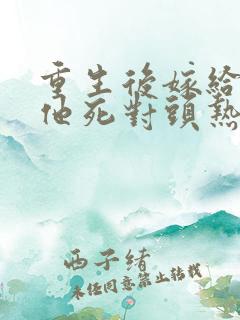 重生後嫁給
他死對頭熱
西子緒
未經同意禁止轉載